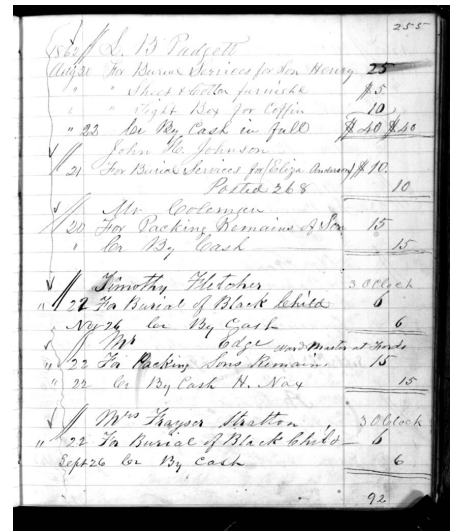 255
1862 // L. B Padgett
Aug 20 For Burial Services for Son Henry 25
" " Sheet & Cotton furnishe $5
" " Flight Box for Coffin 10
" 22 Cr By Cash in full $40 $40
John H. Johnson
// 21 For Burial Services for (Eliza Anderson) $10.
Posted 268 10
Mr. Coleman
// 20 For Packing Remains of Son 15
" Cr By Cash 15
Timothy Fletcher 3 OCloch
" // 22 For Burial of Black Child 6
26 Cr By Cash 6
// Mr Edge Ward Master at Fords
" 22 For Packing Sons Remains 15
" 22 Cr By Cash H. Nax 15
// Mrs Frayser Stratton 3 OCloch
" 22 For Burial of Black Child 6
Sept 26 Cr By Cash 6
92